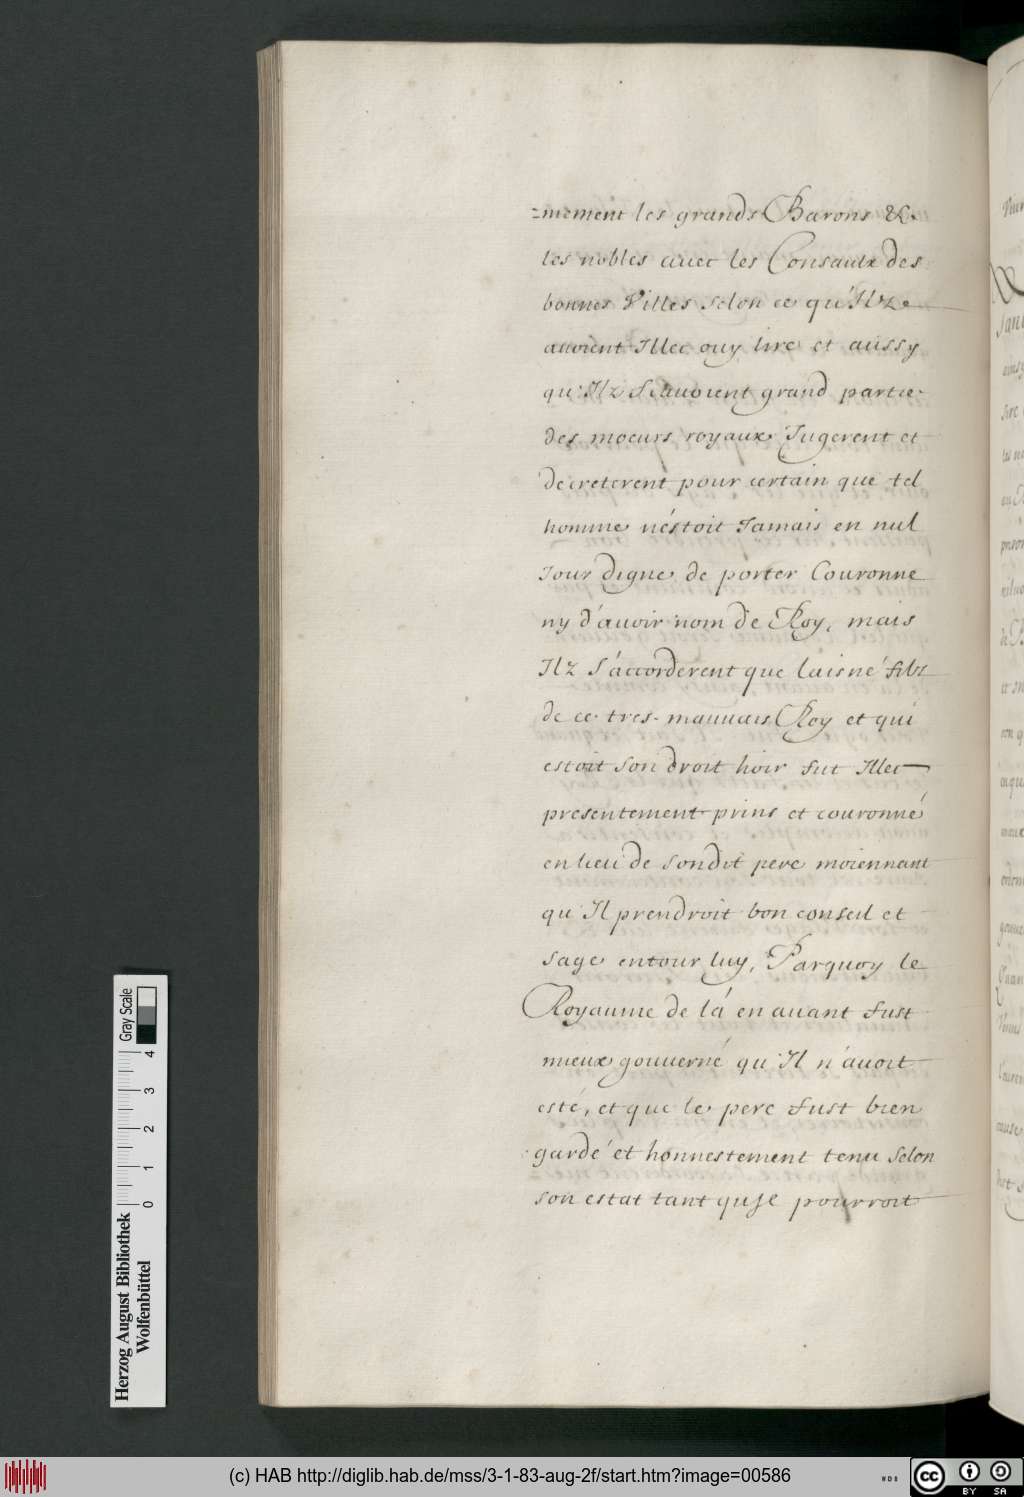 =mement les grands Barons &
les nobles auec les Consaulx des
bonnes Villes selon ce qu'Ilz
auoient Illec ouy lire et aussy
qu'Ilz scauoient grand partie
des moeurs royaux Jugerent et
decreterent pour certain que tel
homme n'éstoit Jamais en nul
Jour digne de porter Couronne
ny d'auoir nom de Roy, mais
Ilz s'accorderent que laisné filz
de ce tres-mauuais Roy et qui
estoit son droit hoir fut Illec
presentement prins et couronné
en lieu de sondit pere moiennant
qu'Il prendroit bon conseil et
sage entour luy, Parquoy le
Royaume de lá en auant fust
mieux gouuerné qu'Il n'auoit
esté, et que le pere fust bien
gardé et honnestement tenu selon
son estat tant quse pourroit
Gray Scale
0 1 2 3 4
Herzog August Bibliothek
Wolfenbüttel
(c) HAB http://diglib.hab.de/mss/3-1-83-aug-2f/start.htm?image=00586
WDB
cc BY SA